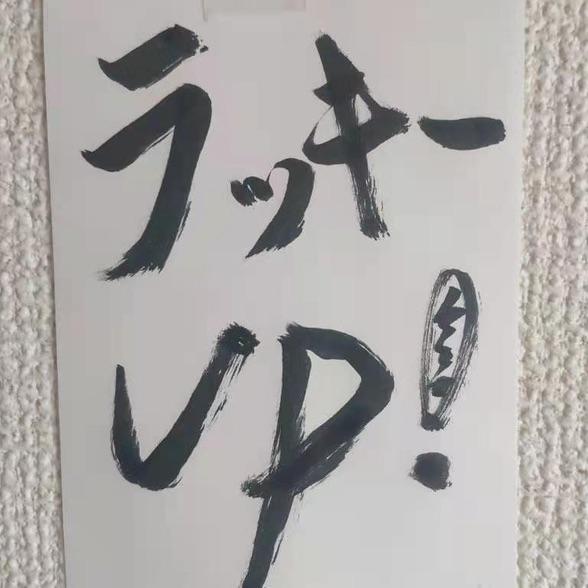 ラッキー
UP!